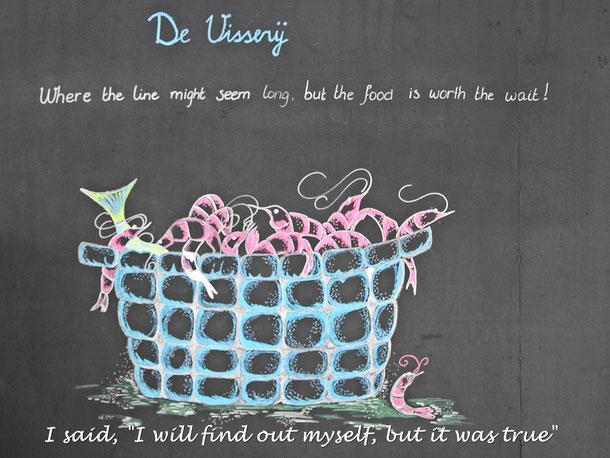 De Visserij
Where the line might seem long, but the food is worth the wait!
I said, "I will find out myself, but it was true"